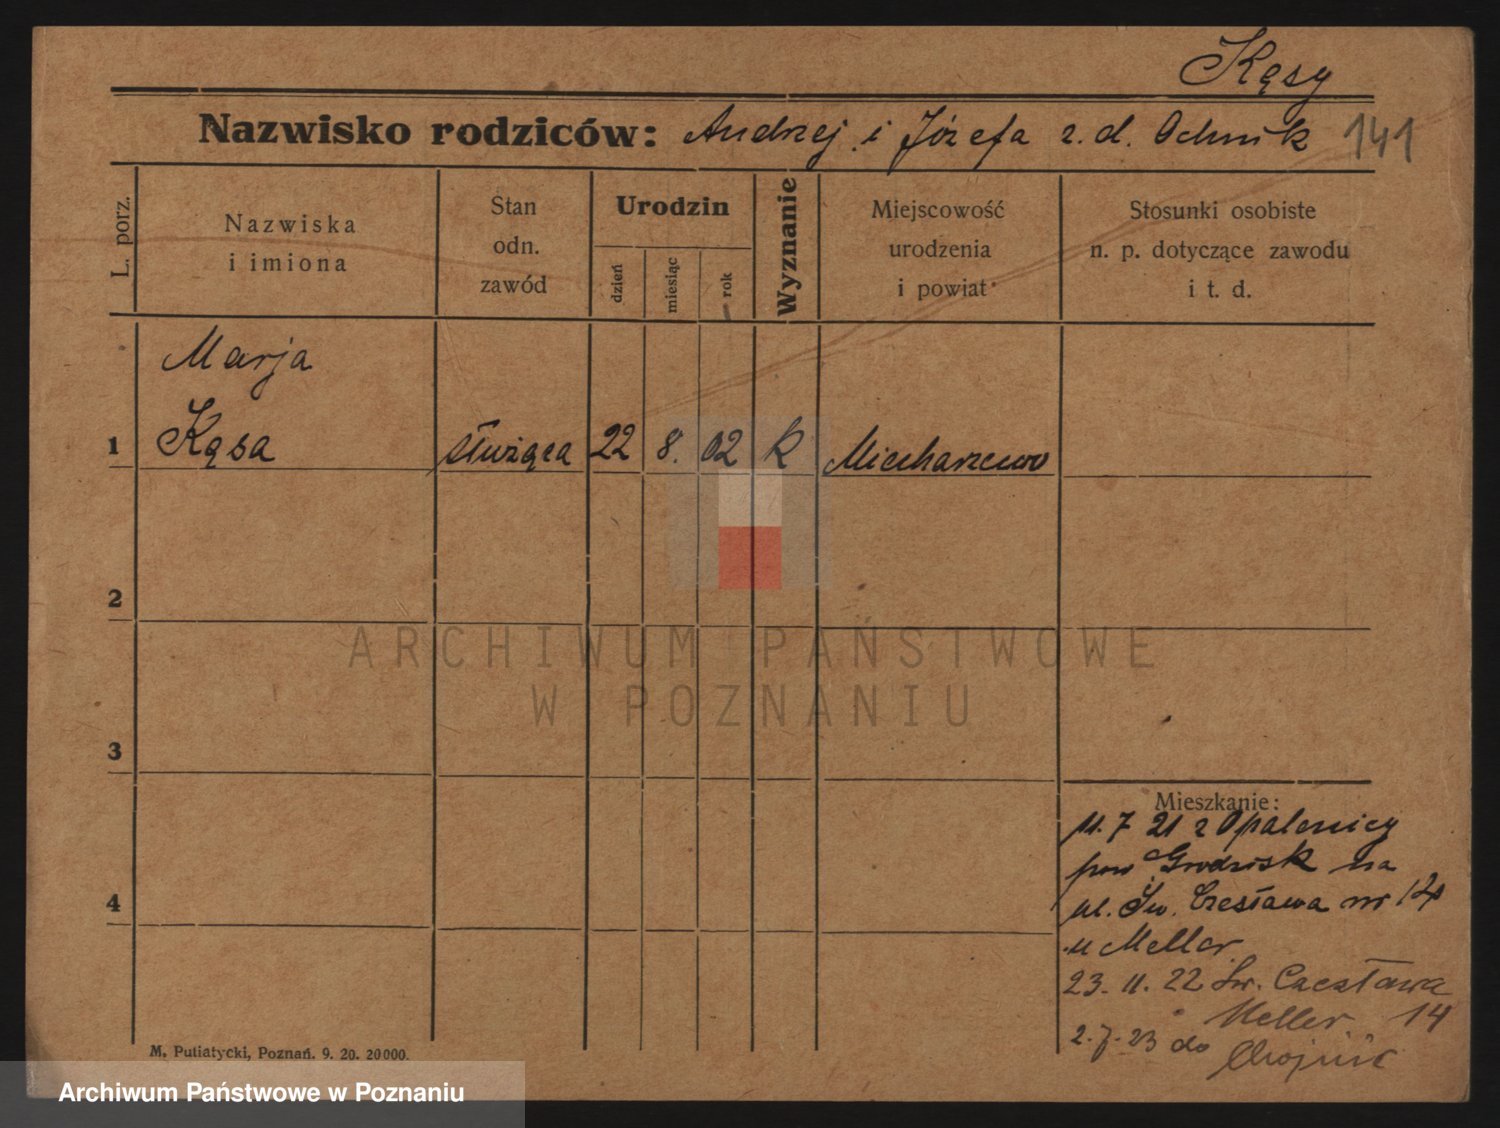 Kęsy
Nazwisko rodziców: Andrzej i Józefa z. d. Ochnik 141
L. porz.
Nazwiska
i imiona
Stan
odn.
zawód
Urodzin
dzień
miesiąc
rok
Wyznanie
Miejscowość
urodzenia
i powiat
Stosunki osobiste
n. p. dotyczące zawodu
i t. d.
Marja
1 Kęsa służąca 22 8. 02 k Miecharzewo
2
3
4
Mieszkanie:
11. 7 21 z Opalenicy
pow Grodzisk na
ul. Św. Czesława nr 14
u Meller
23. 11. 22 Św. Czesława
Meller 14
2. 7. 23 do
M. Putiatycki, Poznań. 9. 20. 20000.
ARCHIWUM PAŃSTWOWE
W POZNANIU
Archiwum Państwowe w Poznaniu